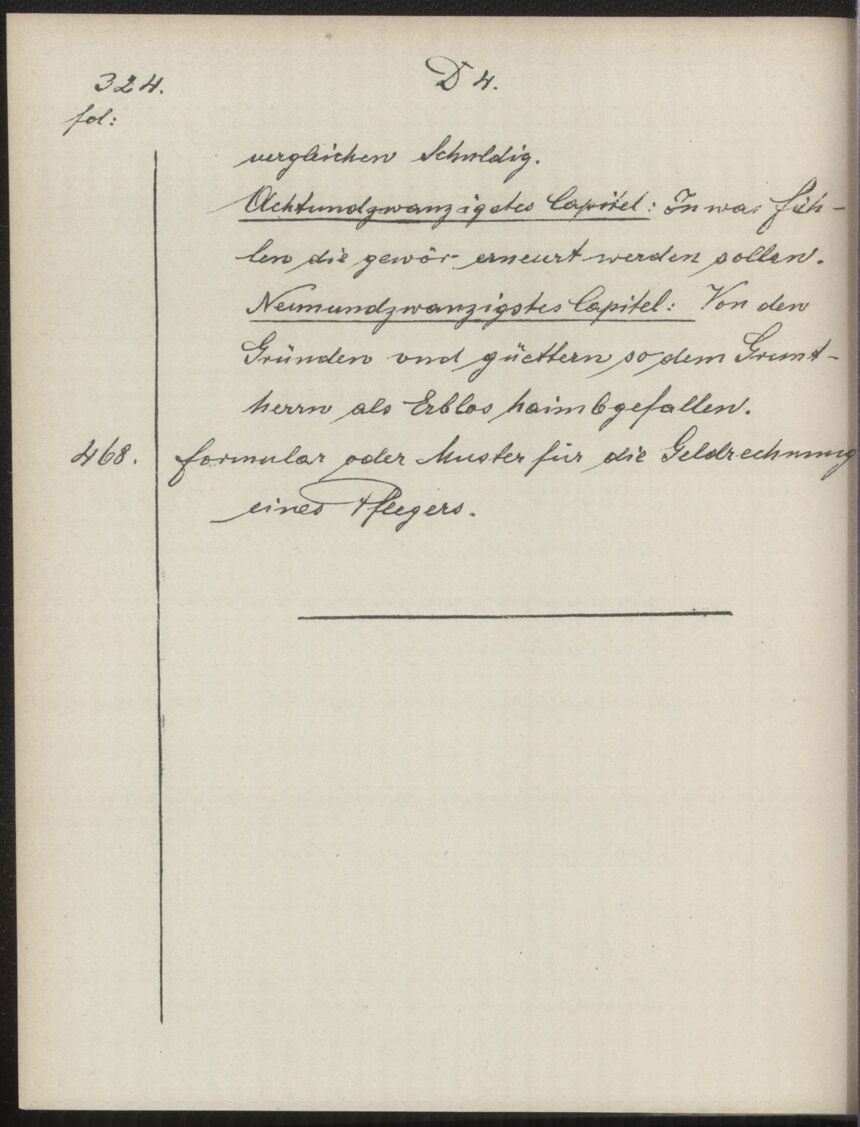 324.
D 4.
fol:
vergleichen Schuldig.
Achtundzwanzigstes Capitel: In was fäh-
len die gewör erneurt werden sollen.
Neunundzwanzigstes Capitel: Von den
Gründen vnd güettern so dem Grunt-
herrn als Erblos haimbgefallen.
468. Formular oder Muster für die Geldrechnung
eines Pflegers.